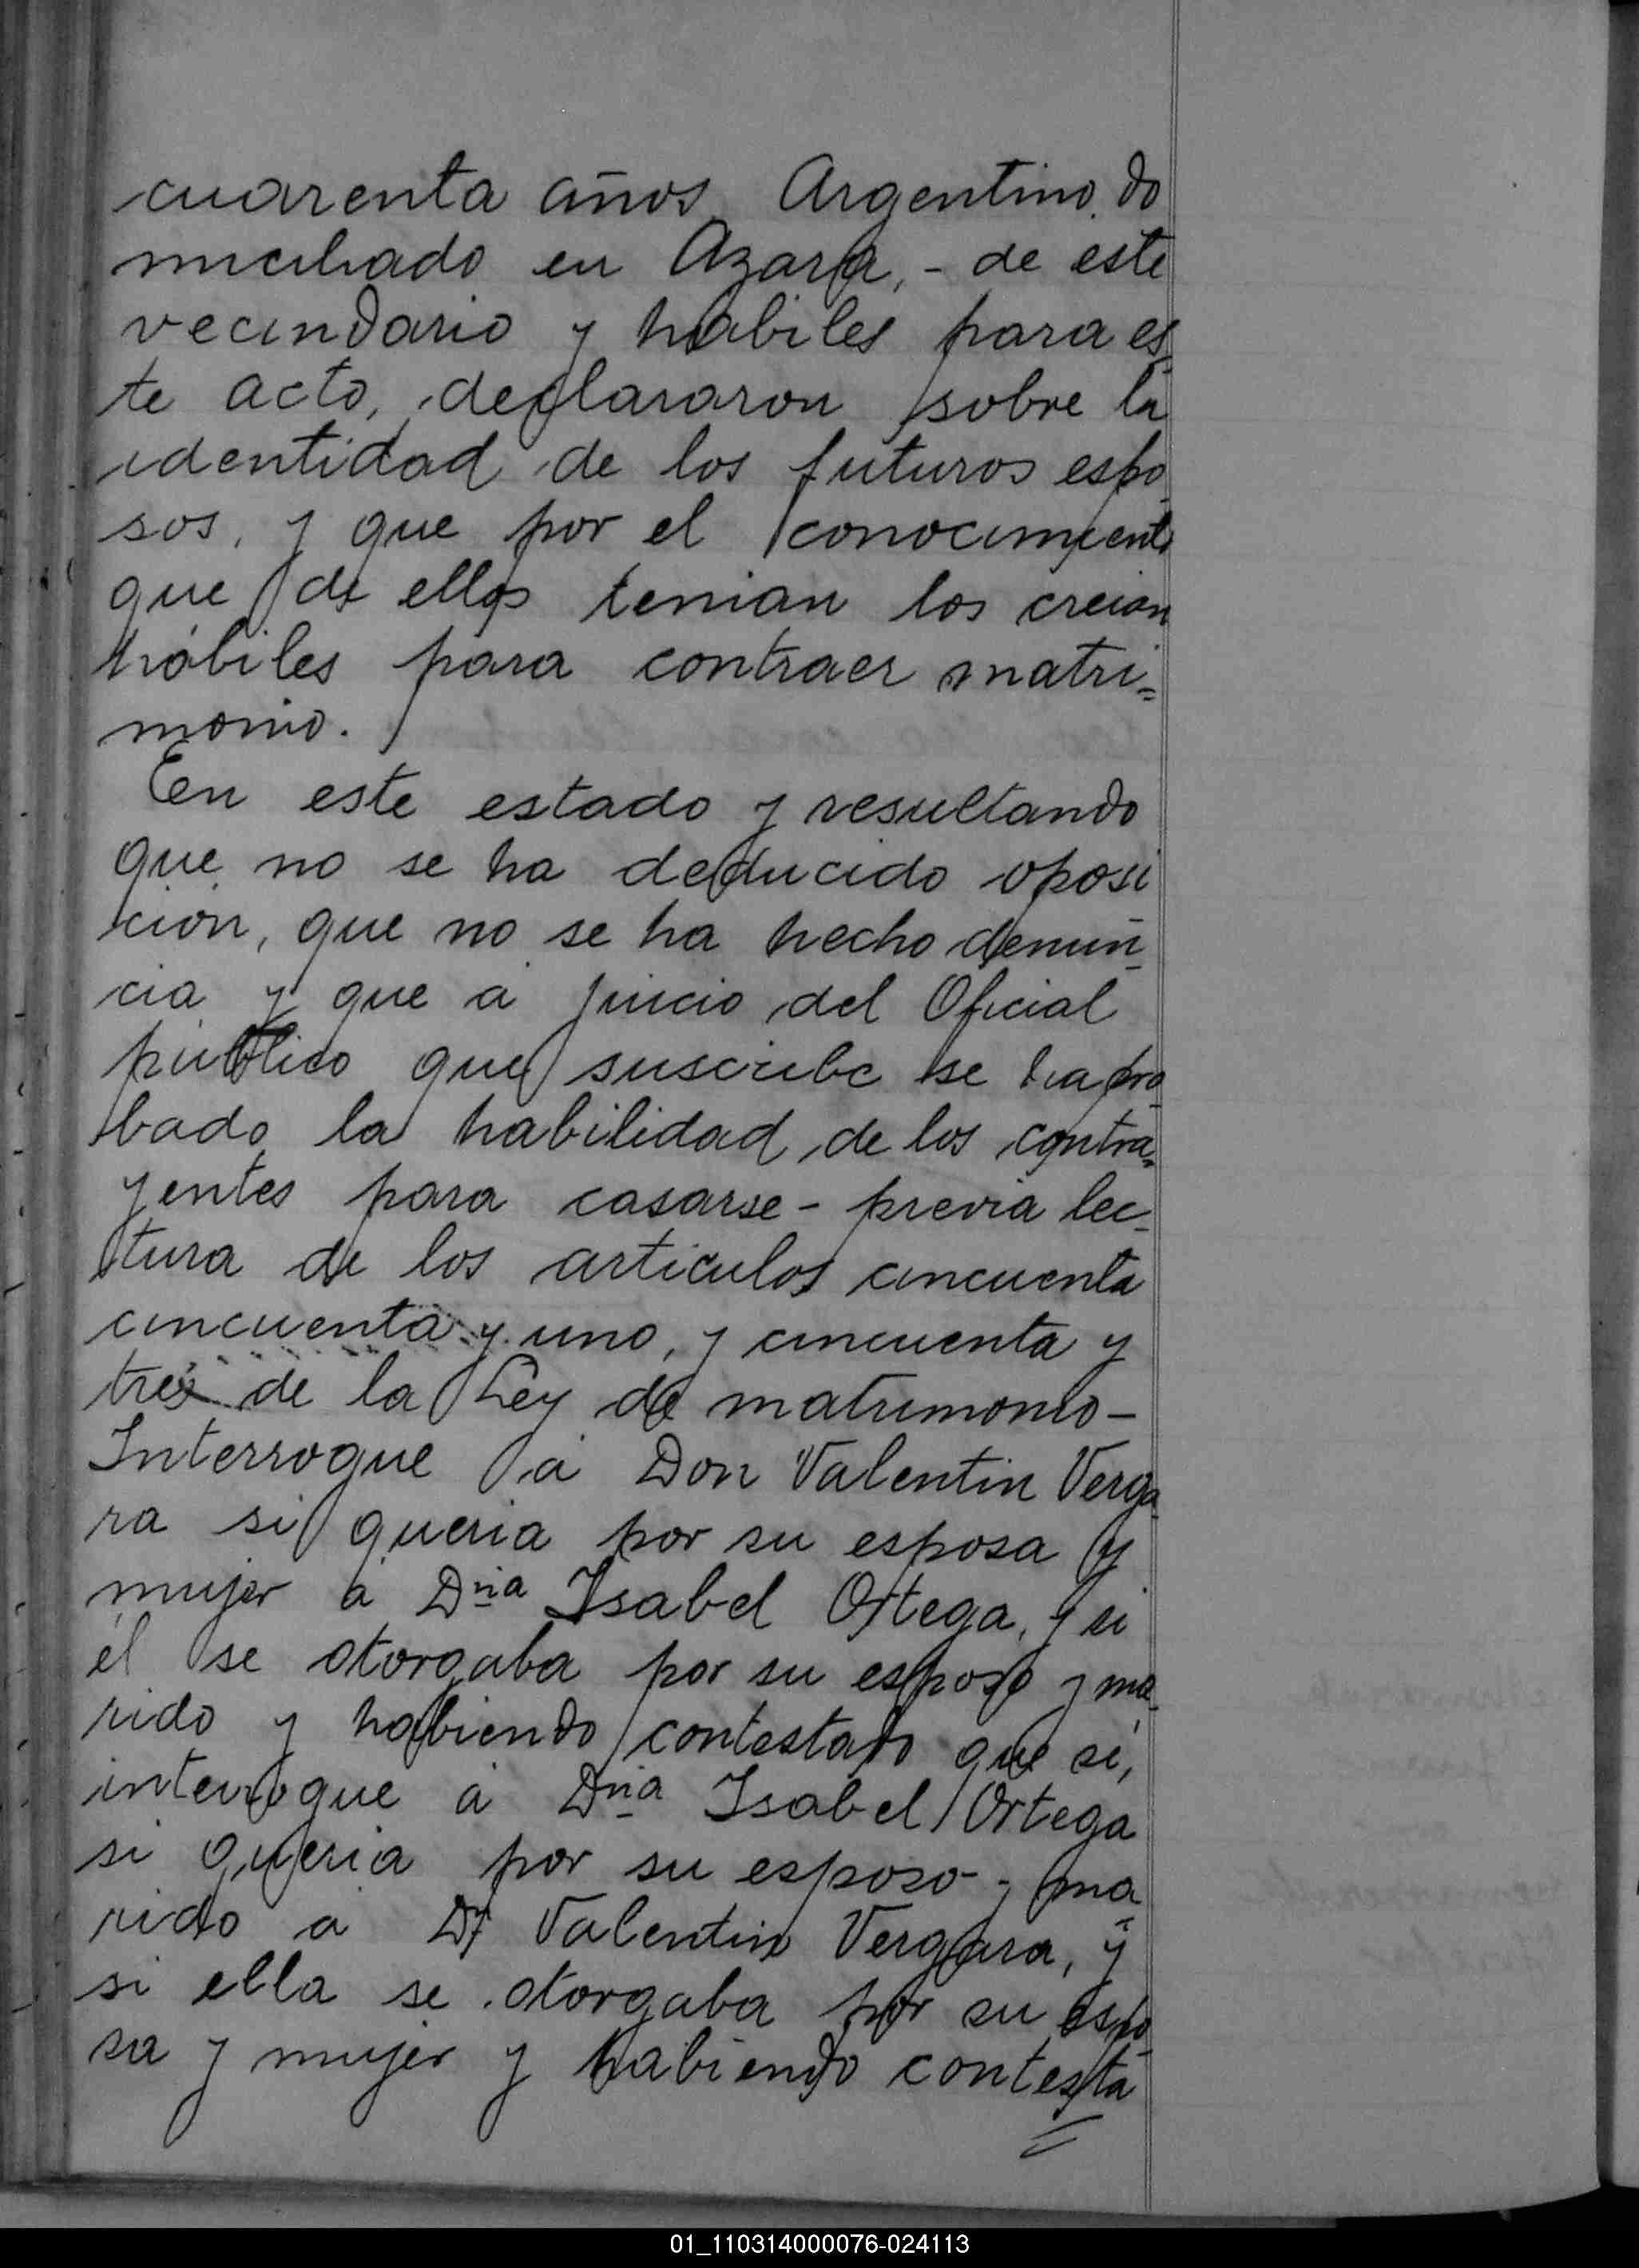 cuarenta años Argentino. do
miciliado en Azara, - de este
vecindario y habiles para es
te acto, declararon sobre la
identidad de los futuros espo
sos, y que por el conocimiento
que de ellos tenian los creian
hábiles para contraer matri=
monio.
En este estado y resultando
que no se ha deducido oposi
cion, que no se ha hecho denun
cia y que á juicio del Oficial
público que suscribe se ha pro
bado la habilidad de los contra=
yentes para casarse - previa lec-
tura de los articulos cincuenta
cincuenta y uno, y cincuenta y
tres de la Ley de matrimonio -
Interrogue á Don Valentin Verga
ra si queria por su esposa y
mujer á Dña Isabel Ortega, y si
él se otorgaba por su esposo y ma
rido y habiendo contestado que sí,
interrogue á Dña Isabel Ortega
si queria por su esposo y ma
rido á Dn Valentin Vergara, y
si ella se otorgaba por su espo
sa y mujer y habiendo contesta=
01_110314000076-024113